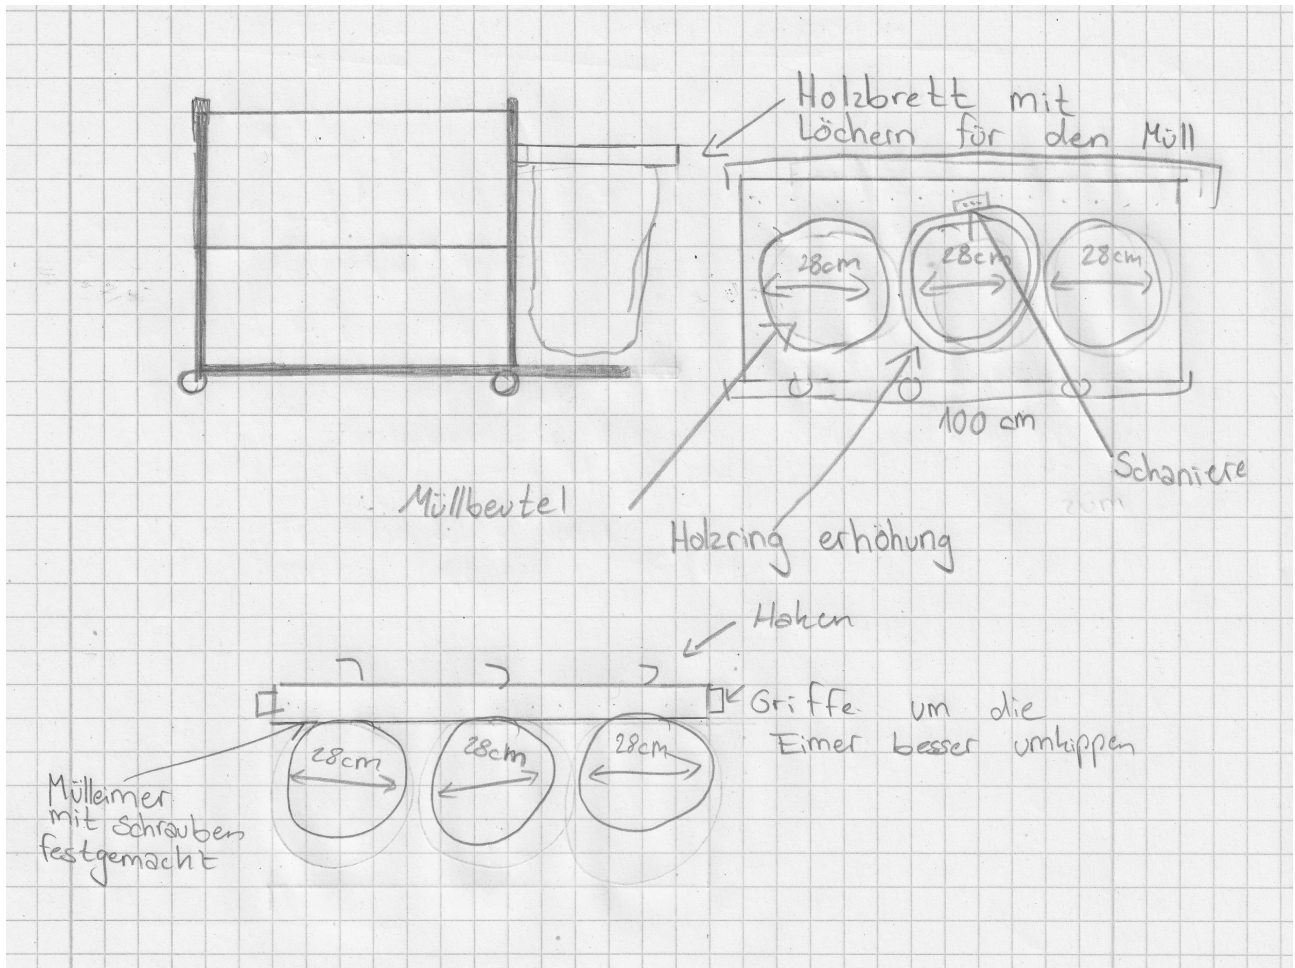 Holzbrett mit
Löchern für den Müll
28cm
28cm
28cm
100 cm
Schaniere
Müllbeutel
Holzring erhöhung
Haken
Griffe um die
Eimer besser umkippen
28cm
28cm
28cm
Mülleimer
mit Schrauben
festgemacht